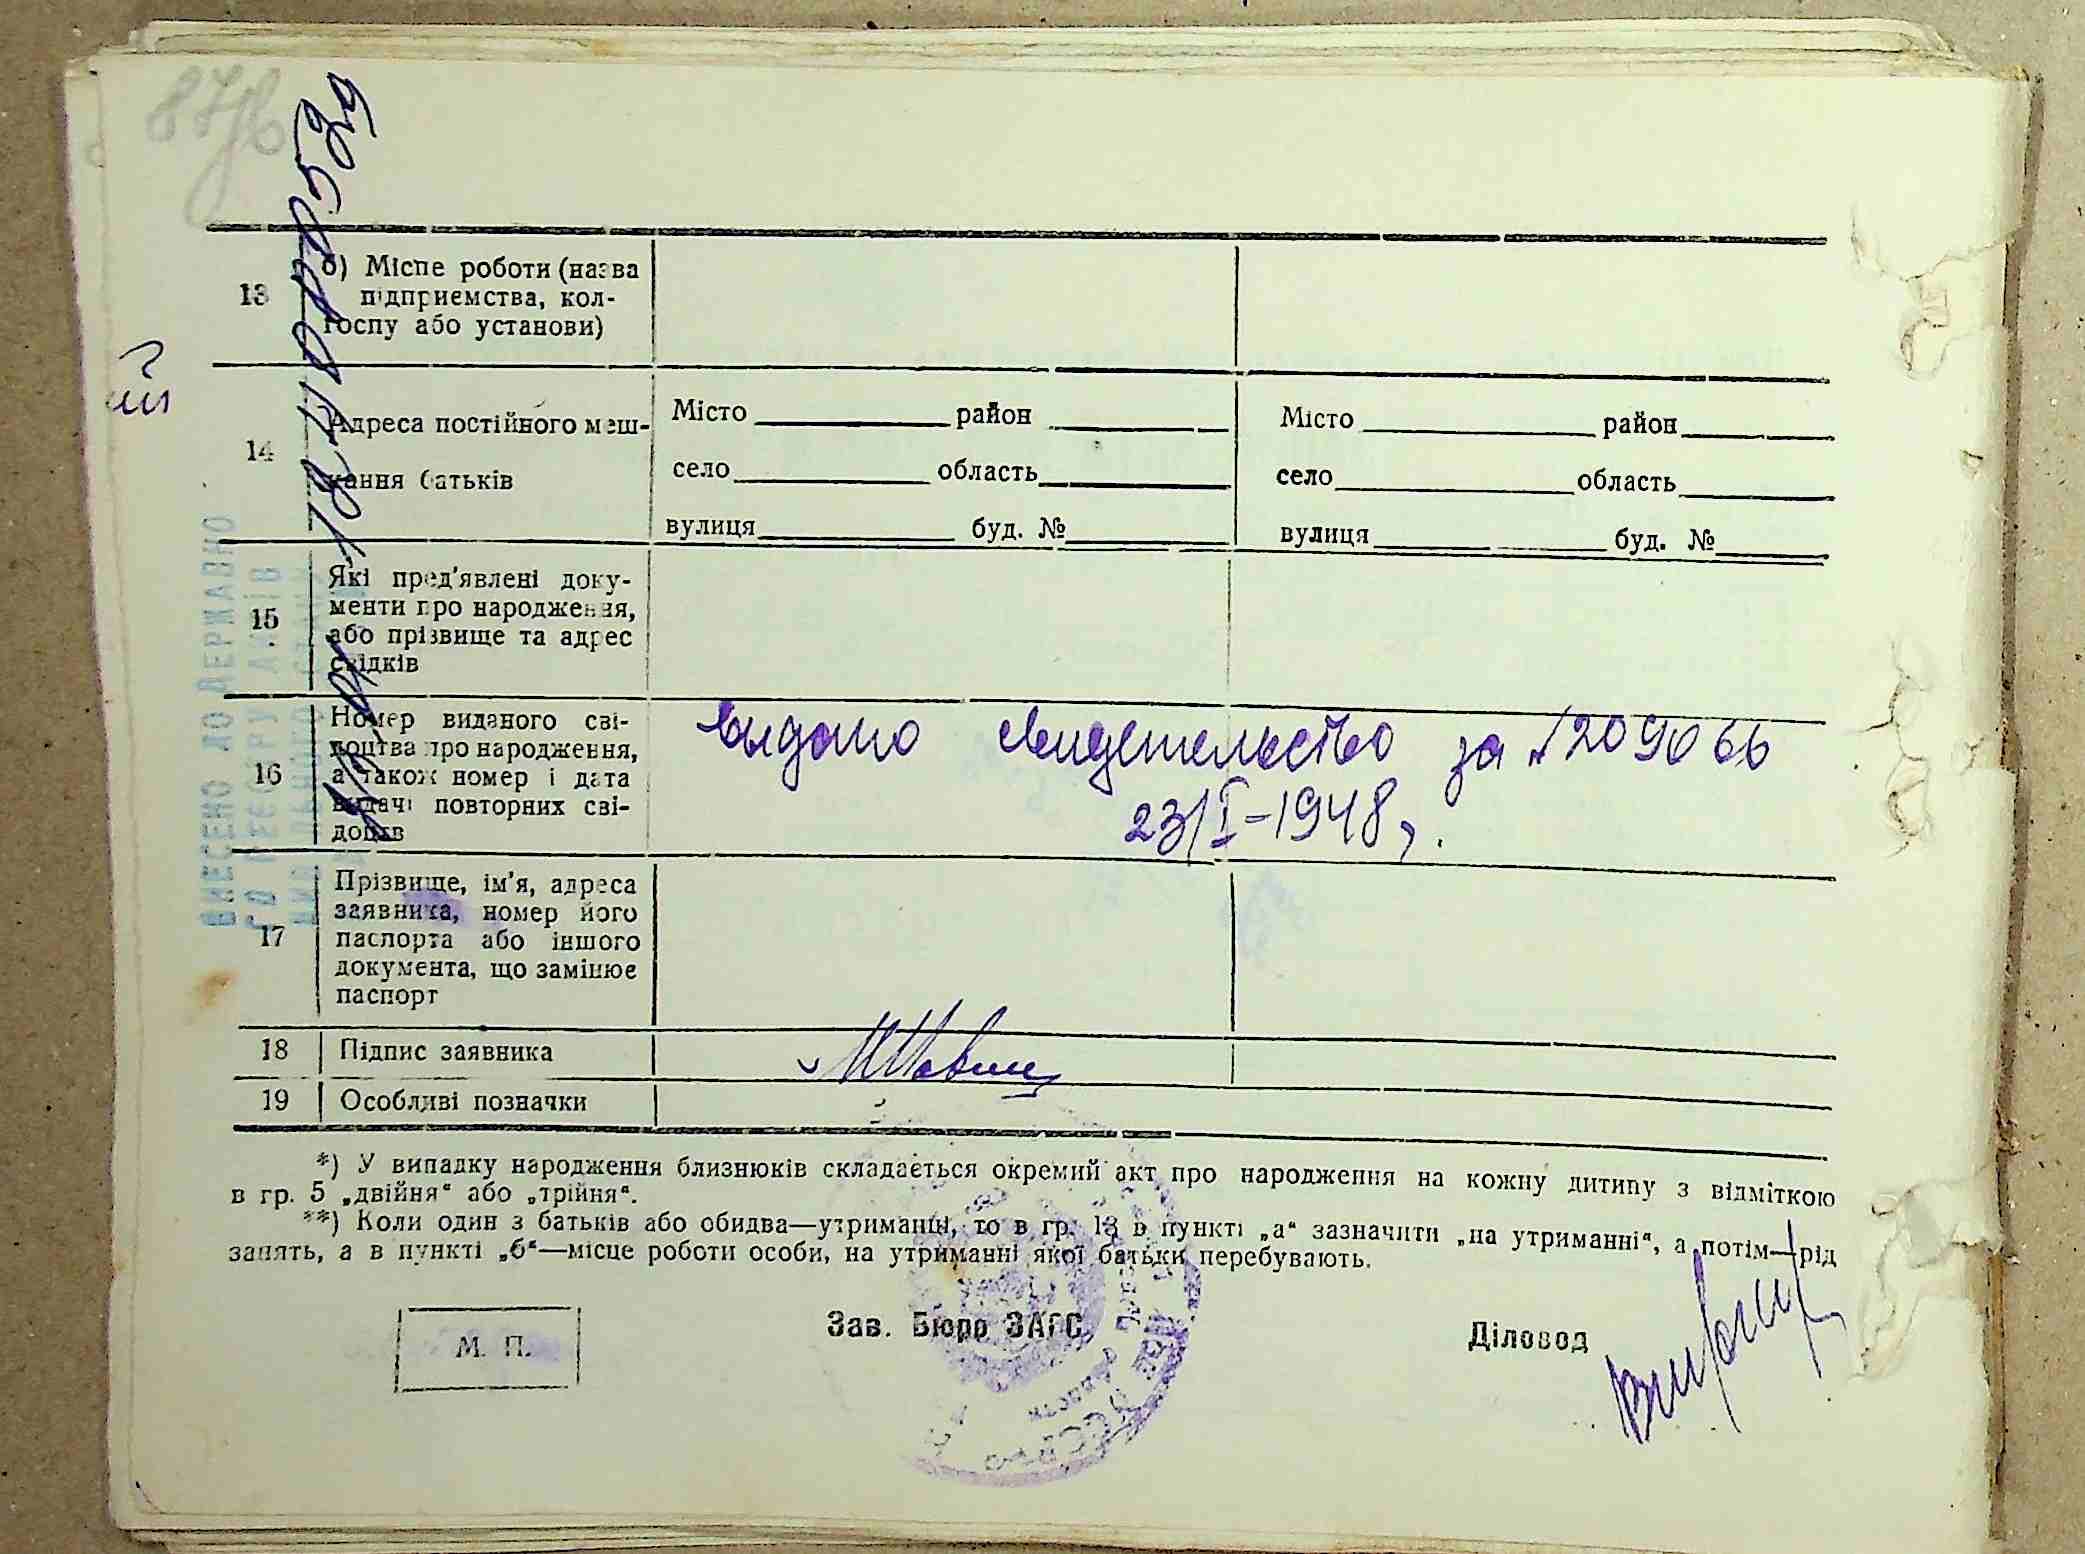 13
б) Місце роботи (назва
підприємства, кол-
госпу або установи)
14
Адреса постійного меш-
кання батьків
Місто район
село область
вулиця буд. №
Місто район
село область
вулиця буд. №
15
Які пред'явлені доку-
менти про народження,
або прізвище та адрес
свідків
16
Номер виданого сві-
доцтва про народження,
а також номер і дата
видачі повторних сві-
доцтв
выдано свидетельство за № 209066
23/I-1948 г.
17
Прізвище, ім'я, адреса
заявника, номер його
паспорта або іншого
документа, що замінює
паспорт
18
Підпис заявника
19
Особливі позначки
*) У випадку народження близнюків складається окремий акт про народження на кожну дитину з відміткою
в гр. 5 „двійня" або „трійня".
**) Коли один з батьків або обидва—утриманці, то в гр. 13 в пункті „а" зазначити „на утриманні", а потім—рід
занять, а в пункті „б"—місце роботи особи, на утриманні якої батьки перебувають.
М. П.
Зав. Бюро ЗАГС
Діловод
ВНЕСЕНО ДО ДЕРЖАВНО
ГО РЕЄСТРУ АКТІВ